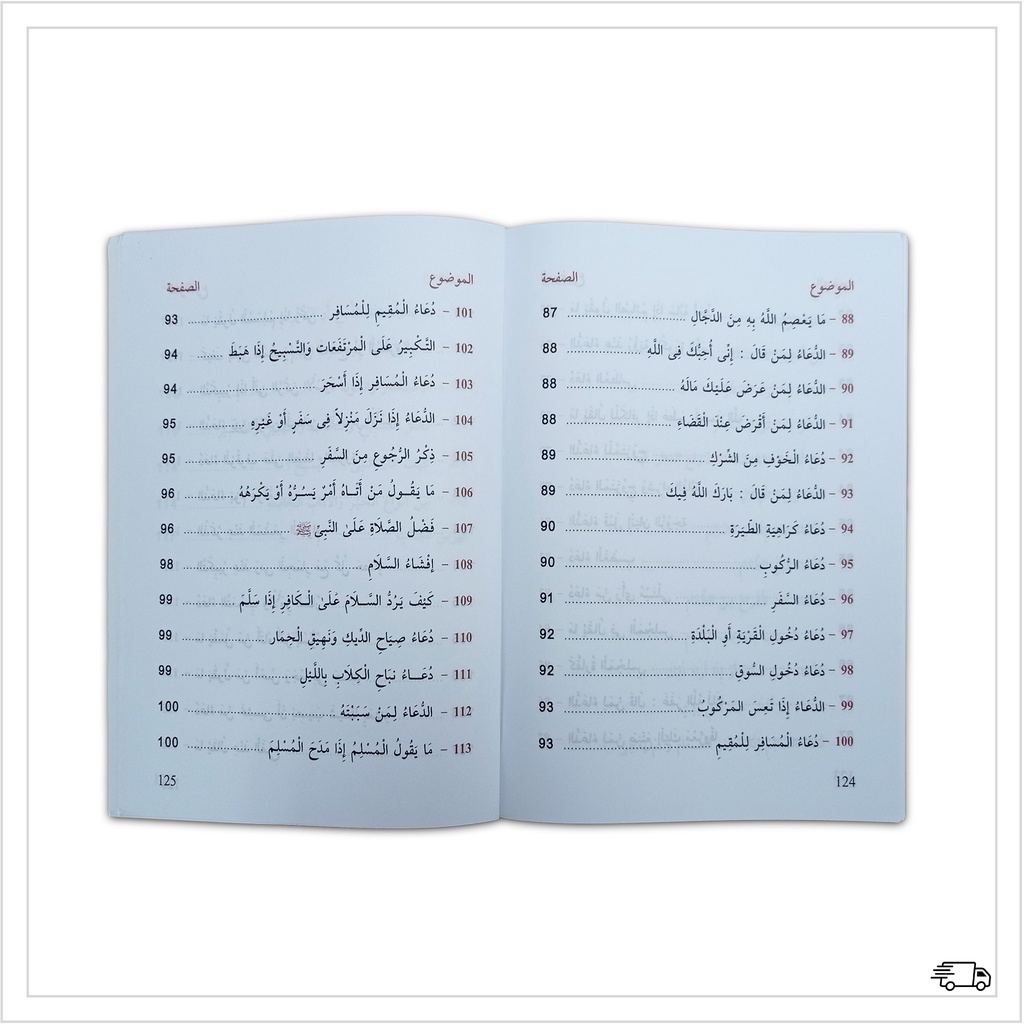 الموضوع الصفحة
88 - مَا يَعْصِمُ اللَّهُ بِهِ مِنَ الدَّجَّالِ ........ 87
89 - الدُّعَاءُ لِمَنْ قَالَ : إِنِّى أُحِبُّكَ فِى اللَّهِ ........ 88
90 - الدُّعَاءُ لِمَنْ عَرَضَ عَلَيْكَ مَالَهُ ........ 88
91 - الدُّعَاءُ لِمَنْ أَقْرَضَ عِنْدَ الْقَضَاءِ ........ 88
92 - دُعَاءُ الْخَوْفِ مِنَ الشِّرْكِ ........ 89
93 - الدُّعَاءُ لِمَنْ قَالَ : بَارَكَ اللَّهُ فِيكَ ........ 89
94 - دُعَاءُ كَرَاهِيَةِ الطِّيَرَةِ ........ 90
95 - دُعَاءُ الرُّكُوبِ ........ 90
96 - دُعَاءُ السَّفَرِ ........ 91
97 - دُعَاءُ دُخُولِ الْقَرْيَةِ أَوِ الْبَلْدَةِ ........ 92
98 - دُعَاءُ دُخُولِ السُّوقِ ........ 92
99 - الدُّعَاءُ إِذَا تَعِسَ الْمَرْكُوبُ ........ 93
100 - دُعَاءُ الْمُسَافِرِ لِلْمُقِيمِ ........ 93
124
الموضوع الصفحة
101 - دُعَاءُ الْمُقِيمِ لِلْمُسَافِرِ ........ 93
102 - التَّكْبِيرُ عَلَى الْمُرْتَفَعَاتِ وَالتَّسْبِيحُ إِذَا هَبَطَ ........ 94
103 - دُعَاءُ الْمُسَافِرِ إِذَا أَسْحَرَ ........ 94
104 - الدُّعَاءُ إِذَا نَزَلَ مَنْزِلاً فِى سَفَرٍ أَوْ غَيْرِهِ ........ 95
105 - ذِكْرُ الرُّجُوعِ مِنَ السَّفَرِ ........ 95
106 - مَا يَقُولُ مَنْ أَتَاهُ أَمْرٌ يَسُرُّهُ أَوْ يَكْرَهُهُ ........ 96
107 - فَضْلُ الصَّلَاةِ عَلَى النَّبِىِّ ﷺ ........ 96
108 - إِفْشَاءُ السَّلَامِ ........ 98
109 - كَيْفَ يَرُدُّ السَّلَامَ عَلَى الْكَافِرِ إِذَا سَلَّمَ ........ 99
110 - دُعَاءُ صِيَاحِ الدِّيكِ وَنَهِيقِ الْحِمَارِ ........ 99
111 - دُعَاءُ نُبَاحِ الْكِلَابِ بِاللَّيْلِ ........ 99
112 - الدُّعَاءُ لِمَنْ سَبَبْتَهُ ........ 100
113 - مَا يَقُولُ الْمُسْلِمُ إِذَا مَدَحَ الْمُسْلِمَ ........ 100
125